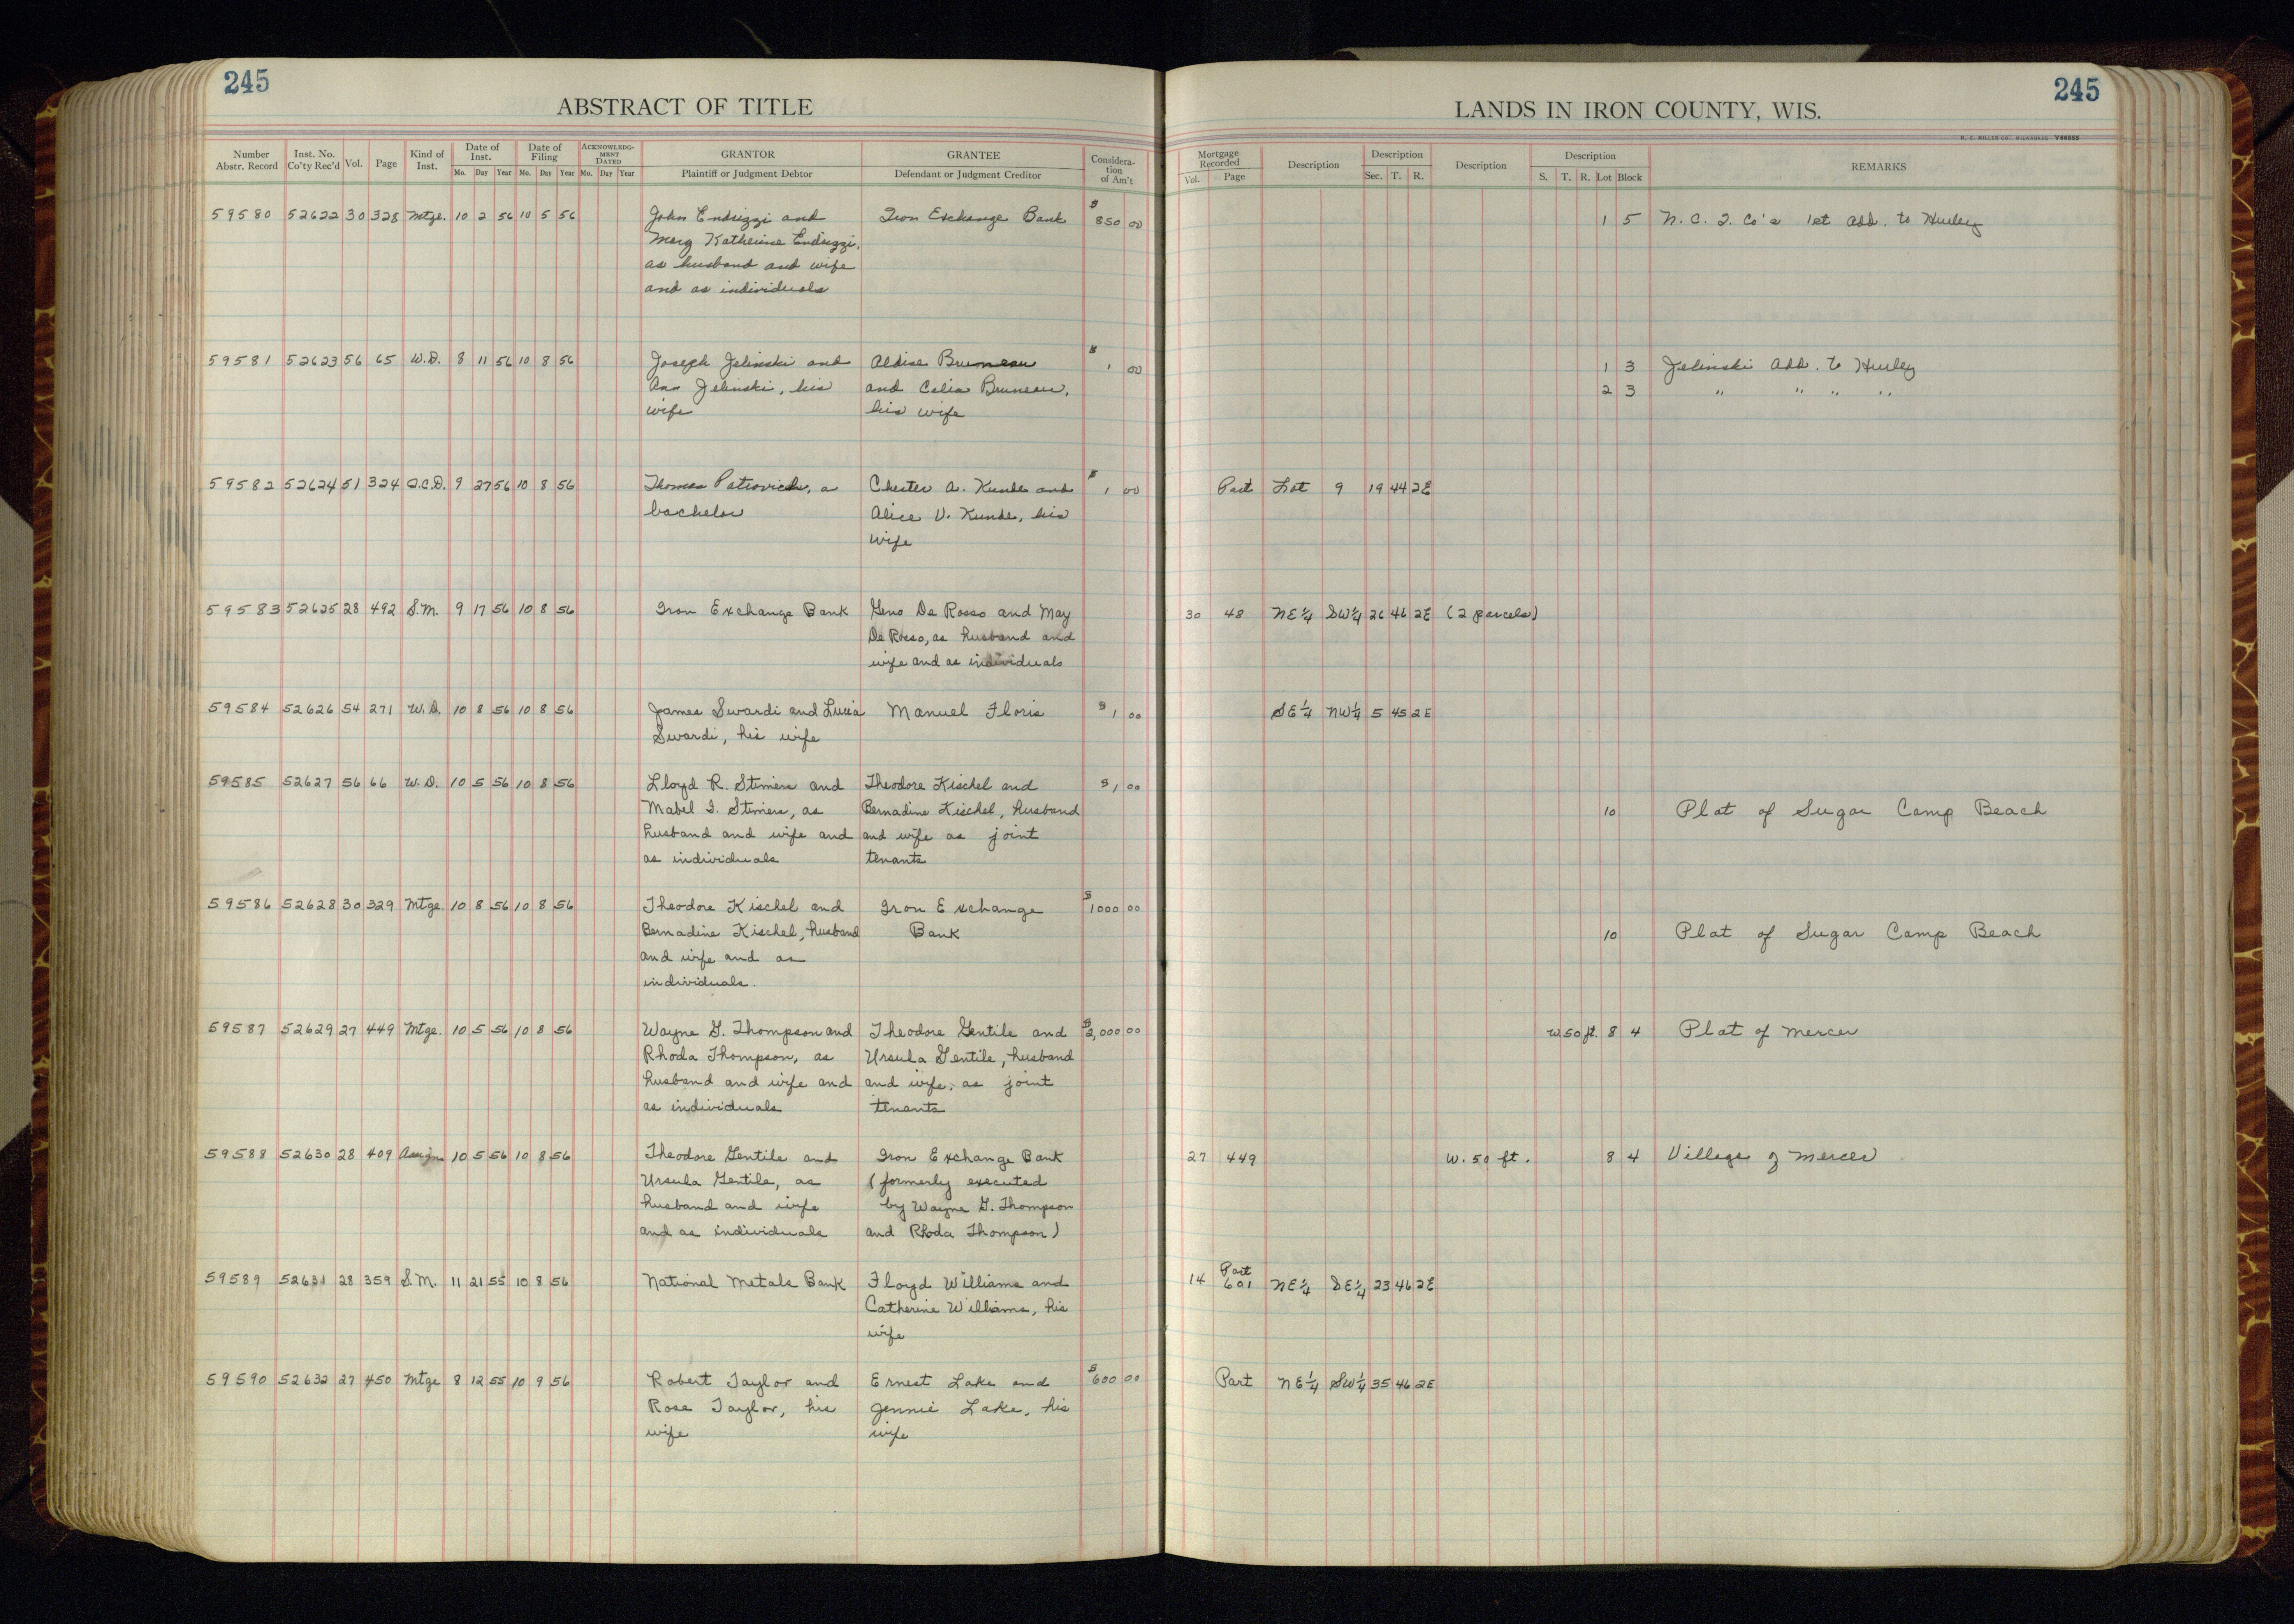 245
ABSTRACT OF TITLE
Number Abstr. Record Inst. No. Co'ty Rec'd Vol. Page Kind of Inst. Date of Inst. Mo. Day Year Date of Filing Mo. Day Year ACKNOWLEDG-MENT DATED Mo. Day Year GRANTOR Plaintiff or Judgment Debtor GRANTEE Defendant or Judgment Creditor Considera-tion of Am't
59580 52622 30 328 Mtge. 10 2 56 10 5 56 John Endrizzi and Iron Exchange Bank $850 00
Mary Katherine Endrizzi,
as husband and wife
and as individuals
59581 52623 56 65 W.D. 8 11 56 10 8 56 Joseph Jelinski and Aldise Bruneau $1 00
Ann Jelinski, his and Celia Bruneau,
wife his wife
59582 52624 51 324 Q.C.D. 9 27 56 10 8 56 Thomas Patrovich, a Chester A. Kunde and $1 00
bachelor Alice V. Kunde, his
wife
59583 52625 28 492 S.M. 9 17 56 10 8 56 Iron Exchange Bank Geno De Rosso and May
De Rosso, as husband and
wife and as individuals
59584 52626 54 271 W.D. 10 8 56 10 8 56 James Swardi and Lucia Manuel Floris $1 00
Swardi, his wife
59585 52627 56 66 W.D. 10 5 56 10 8 56 Lloyd R. Stimers and Theodore Kischel and $1 00
Mabel I. Stimers, as Bernadine Kischel, husband
husband and wife and and wife as joint
as individuals tenants
59586 52628 30 329 Mtge. 10 8 56 10 8 56 Theodore Kischel and Iron Exchange $1000 00
Bernadine Kischel, husband Bank
and wife and as
individuals.
59587 52629 27 449 Mtge. 10 5 56 10 8 56 Wayne G. Thompson and Theodore Gentile and $2,000 00
Rhoda Thompson, as Ursula Gentile, husband
husband and wife and and wife, as joint
as individuals tenants
59588 52630 28 409 Assign 10 5 56 10 8 56 Theodore Gentile and Iron Exchange Bank
Ursula Gentile, as (formerly executed
husband and wife by Wayne G. Thompson
and as individuals and Rhoda Thompson)
59589 52631 28 359 S.M. 11 21 55 10 8 56 National Metals Bank Floyd Williams and
Catherine Williams, his
wife
59590 52632 27 450 Mtge 8 12 55 10 9 56 Robert Taylor and Ernest Lake and $600 00
Rose Taylor, his Jennie Lake, his
wife wife
245
LANDS IN IRON COUNTY, WIS.
H. C. MILLER CO., MILWAUKEE V88855
Mortgage Recorded Vol. Page Description Description Sec. T. R. Description Description S. T. R. Lot Block REMARKS
1 5 N. C. I. Co's 1st Add. to Hurley
1 3 Jelinski Add. to Hurley
2 3 " " " "
Part Lot 9 19 44 2E
30 48 NE¼ SW¼ 26 46 2E (2 parcels)
SE¼ NW¼ 5 45 2E
10 Plat of Sugar Camp Beach
10 Plat of Sugar Camp Beach
W.50 ft. 8 4 Plat of Mercer
27 449 W. 50 ft. 8 4 Village of Mercer
Part
14 601 NE¼ SE¼ 23 46 2E
Part NE¼ SW¼ 35 46 2E